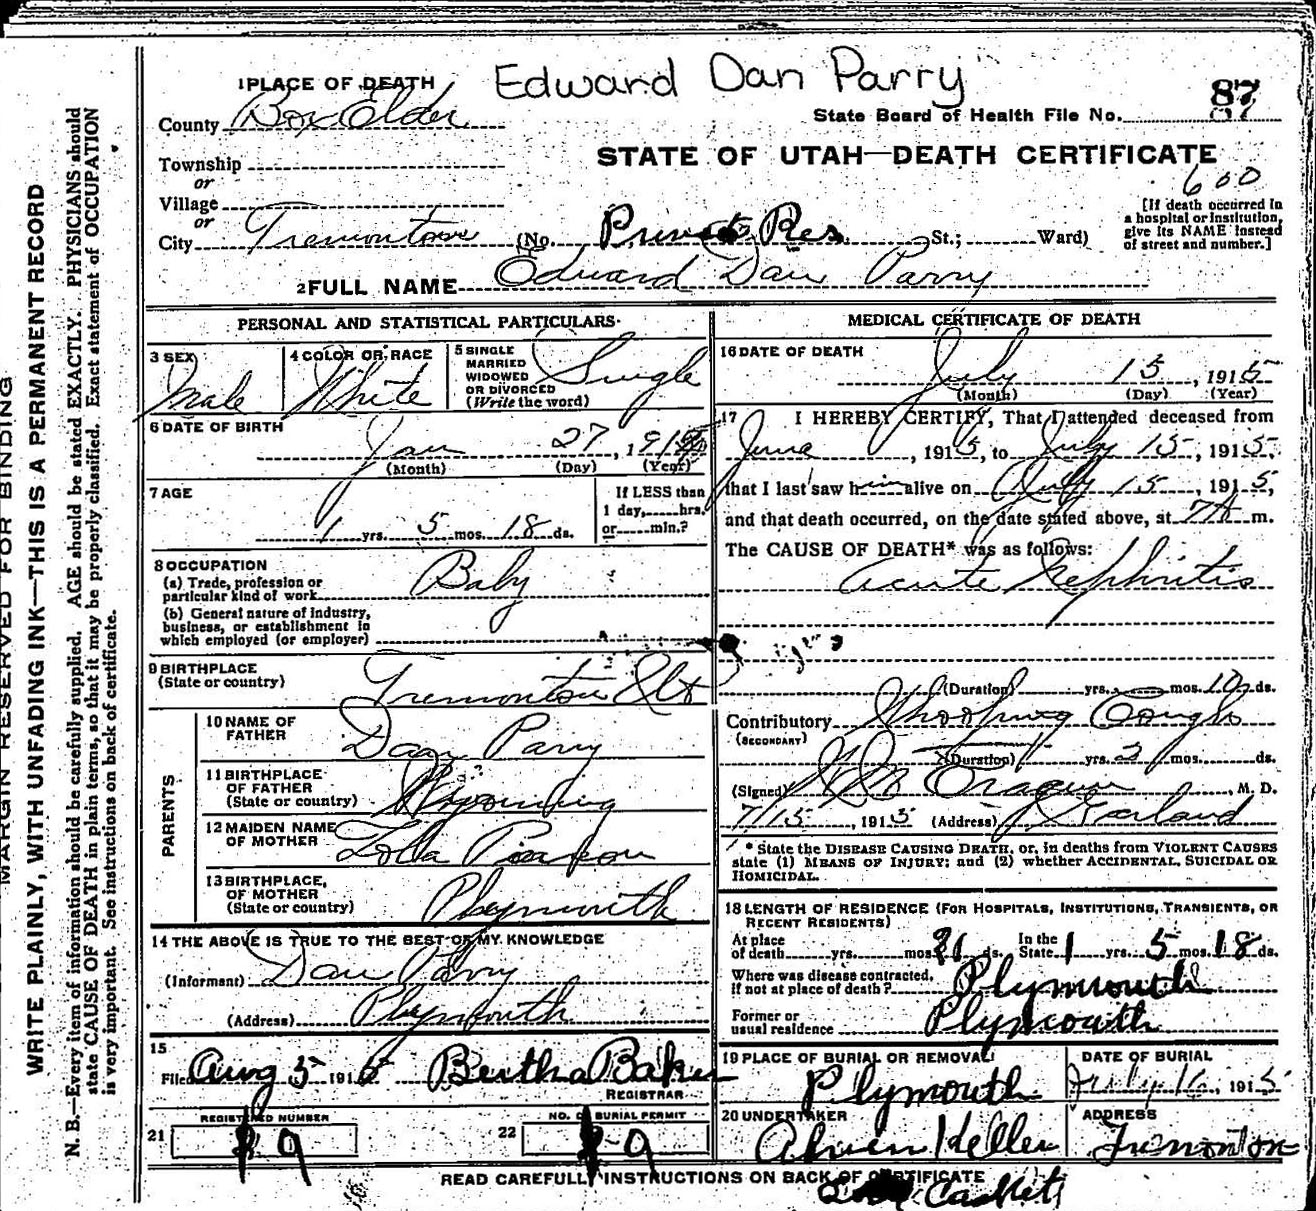 MARGIN RESERVED FOR BINDING
WRITE PLAINLY, WITH UNFADING INK—THIS IS A PERMANENT RECORD
N. B.—Every item of information should be carefully supplied. AGE should be stated EXACTLY. PHYSICIANS should
state CAUSE OF DEATH in plain terms, so that it may be properly classified. Exact statement of OCCUPATION
is very important. See instructions on back of certificate.
Edward Dan Parry
1 PLACE OF DEATH
87
State Board of Health File No.
County Box Elder
STATE OF UTAH—DEATH CERTIFICATE
Township
or
600
Village
or
[If death occurred in
a hospital or institution,
give its NAME instead
of street and number.]
City Tremonton (No. Private Res. St.; Ward)
2 FULL NAME Edward Dan Parry
PERSONAL AND STATISTICAL PARTICULARS
3 SEX Male
4 COLOR OR RACE White
5 SINGLE
MARRIED
WIDOWED
OR DIVORCED
(Write the word) Single
6 DATE OF BIRTH
Jan 27, 191
(Month) (Day) (Year)
7 AGE
1 yrs. 5 mos. 18 ds.
If LESS than
1 day, hrs.
or min.?
8 OCCUPATION
(a) Trade, profession or
particular kind of work Baby
(b) General nature of industry,
business, or establishment in
which employed (or employer)
9 BIRTHPLACE
(State or country) Tremonton Ut
PARENTS
10 NAME OF
FATHER Dan Parry
11 BIRTHPLACE
OF FATHER
(State or country) Wyoming
12 MAIDEN NAME
OF MOTHER
13 BIRTHPLACE
OF MOTHER
(State or country) Plymouth
14 THE ABOVE IS TRUE TO THE BEST OF MY KNOWLEDGE
(Informant) Dan Parry
(Address) Plymouth
15
Filed Aug 5 1915 Bertha Baker
REGISTRAR
REGISTERED NUMBER
21 9
NO. OF BURIAL PERMIT
22 9
MEDICAL CERTIFICATE OF DEATH
16 DATE OF DEATH
July 15, 1915
(Month) (Day) (Year)
17 I HEREBY CERTIFY, That I attended deceased from
June, 1915, to July 15, 1915,
that I last saw him alive on July 15, 1915,
and that death occurred, on the date stated above, at 7 A m.
The CAUSE OF DEATH* was as follows:
Acute Nephritis
(Duration) yrs. mos. 10 ds.
Contributory Whooping Cough
(SECONDARY)
(Duration) yrs. 2 mos. ds.
(Signed) M. D.
7/15, 1915 (Address) Garland
* State the DISEASE CAUSING DEATH, or, in deaths from VIOLENT CAUSES
state (1) MEANS OF INJURY; and (2) whether ACCIDENTAL, SUICIDAL OR
HOMICIDAL.
18 LENGTH OF RESIDENCE (FOR HOSPITALS, INSTITUTIONS, TRANSIENTS, OR
RECENT RESIDENTS)
At place
of death yrs. mos. 21 ds. In the
State 1 yrs. 5 mos. 18 ds.
Where was disease contracted,
if not at place of death? Plymouth
Former or
usual residence Plymouth
19 PLACE OF BURIAL OR REMOVAL
Plymouth
DATE OF BURIAL
July 16, 1915
20 UNDERTAKER
Keller
ADDRESS
Tremonton
READ CAREFULLY INSTRUCTIONS ON BACK OF CERTIFICATE
Caskets